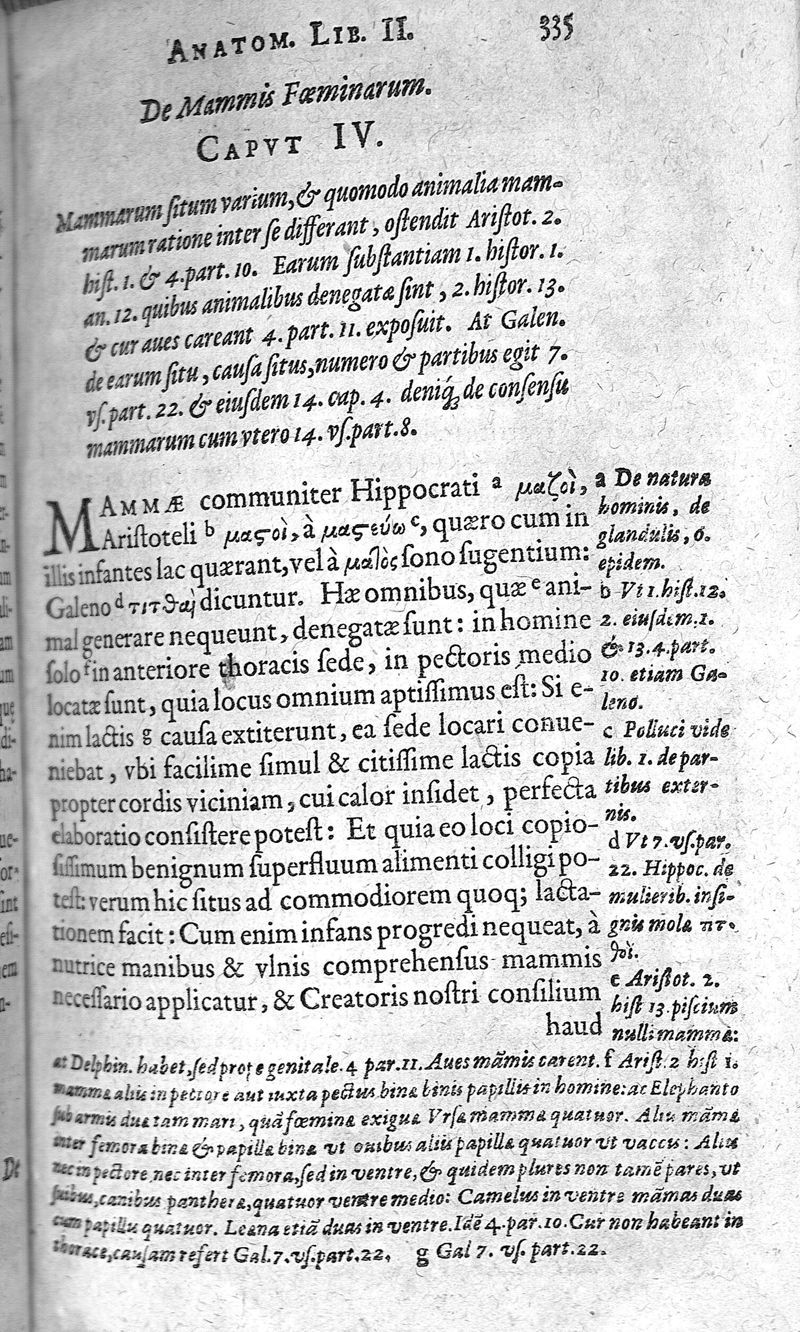 ANATOM. LIB. II. 335
De Mammis Fœminarum.
CAPVT IV.
Mammarum ſitum varium, & quomodo animalia mam-
marum ratione inter ſe differant, oſtendit Ariſtot. 2.
hiſt. 1. & 4. part. 10. Earum ſubſtantiam 1. hiſtor. 1.
an. 12. quibus animalibus denegatæ ſint, 2. hiſtor. 13.
& cur aues careant 4. part. 11. expoſuit. At Galen.
de earum ſitu, cauſa ſitus, numero & partibus egit 7.
vſ. part. 22. & eiuſdem 14. cap. 4. deniq; de conſenſu
mammarum cum vtero 14. vſ. part. 8.
MAMMÆ communiter Hippocrati a μαζοὶ,
Ariſtoteli b μαϛοὶ, à μαϛεύω c, quæro cum in
illis infantes lac quærant, vel à ſono ſugentium:
Galeno d τιτθαὶ dicuntur. Hæ omnibus, quæ e ani-
mal generare nequeunt, denegatæ ſunt: in homine
ſolo f in anteriore thoracis ſede, in pectoris medio
locatæ ſunt, quia locus omnium aptiſſimus eſt: Si e-
nim lactis g cauſa extiterunt, ea ſede locari conue-
niebat, vbi facilime ſimul & citiſſime lactis copia
propter cordis viciniam, cui calor inſidet, perfecta
elaboratio conſiſtere poteſt: Et quia eo loci copio-
ſiſſimum benignum ſuperfluum alimenti colligi po-
teſt: verum hic ſitus ad commodiorem quoq; lacta-
tionem facit: Cum enim infans progredi nequeat, à
nutrice manibus & vlnis comprehenſus mammis
neceſſario applicatur, & Creatoris noſtri conſilium
haud
a De natura
hominis, de
glandulis, 6.
epidem.
b Vt 1. hiſt. 12.
2. eiuſdem. 1.
& 13. 4. part.
10. etiam Ga-
leno.
c Polluci vide
lib. 1. de par-
tibus exter-
nis.
d Vt 7. vſ. par.
22. Hippoc. de
mulierib. inſi-
gnis mola τιτ-
θοὶ.
e Ariſtot. 2.
hiſt 13. piſcium
nulli mammæ:
at Delphin. habet, ſed prope genitale. 4 par. 11. Aues mãmis carent. f Ariſt. 2 hiſt 1.
mammæ aliis in pectore aut iuxta pectus binæ binis papillis in homine: ac Elephanto
ſub armis duæ tam mari, quã fœminæ exiguæ Vrſæ mammæ quatuor. Aliis mãmæ
inter femora binæ & papillæ binæ vt ouibus aliis papillæ quatuor vt vaccis: Aliis
nec in pectore nec inter femora, ſed in ventre, & quidem plures non tamẽ pares, vt
ſuibus, canibus pantheræ, quatuor ventre medio: Camelus in ventre mãmas duas
cum papillis quatuor. Leæna etiã duas in ventre. Idẽ 4. par. 10. Cur non habeant in
thorace, cauſam refert Gal. 7. vſ. part. 22, g Gal 7. vſ. part. 22.
De